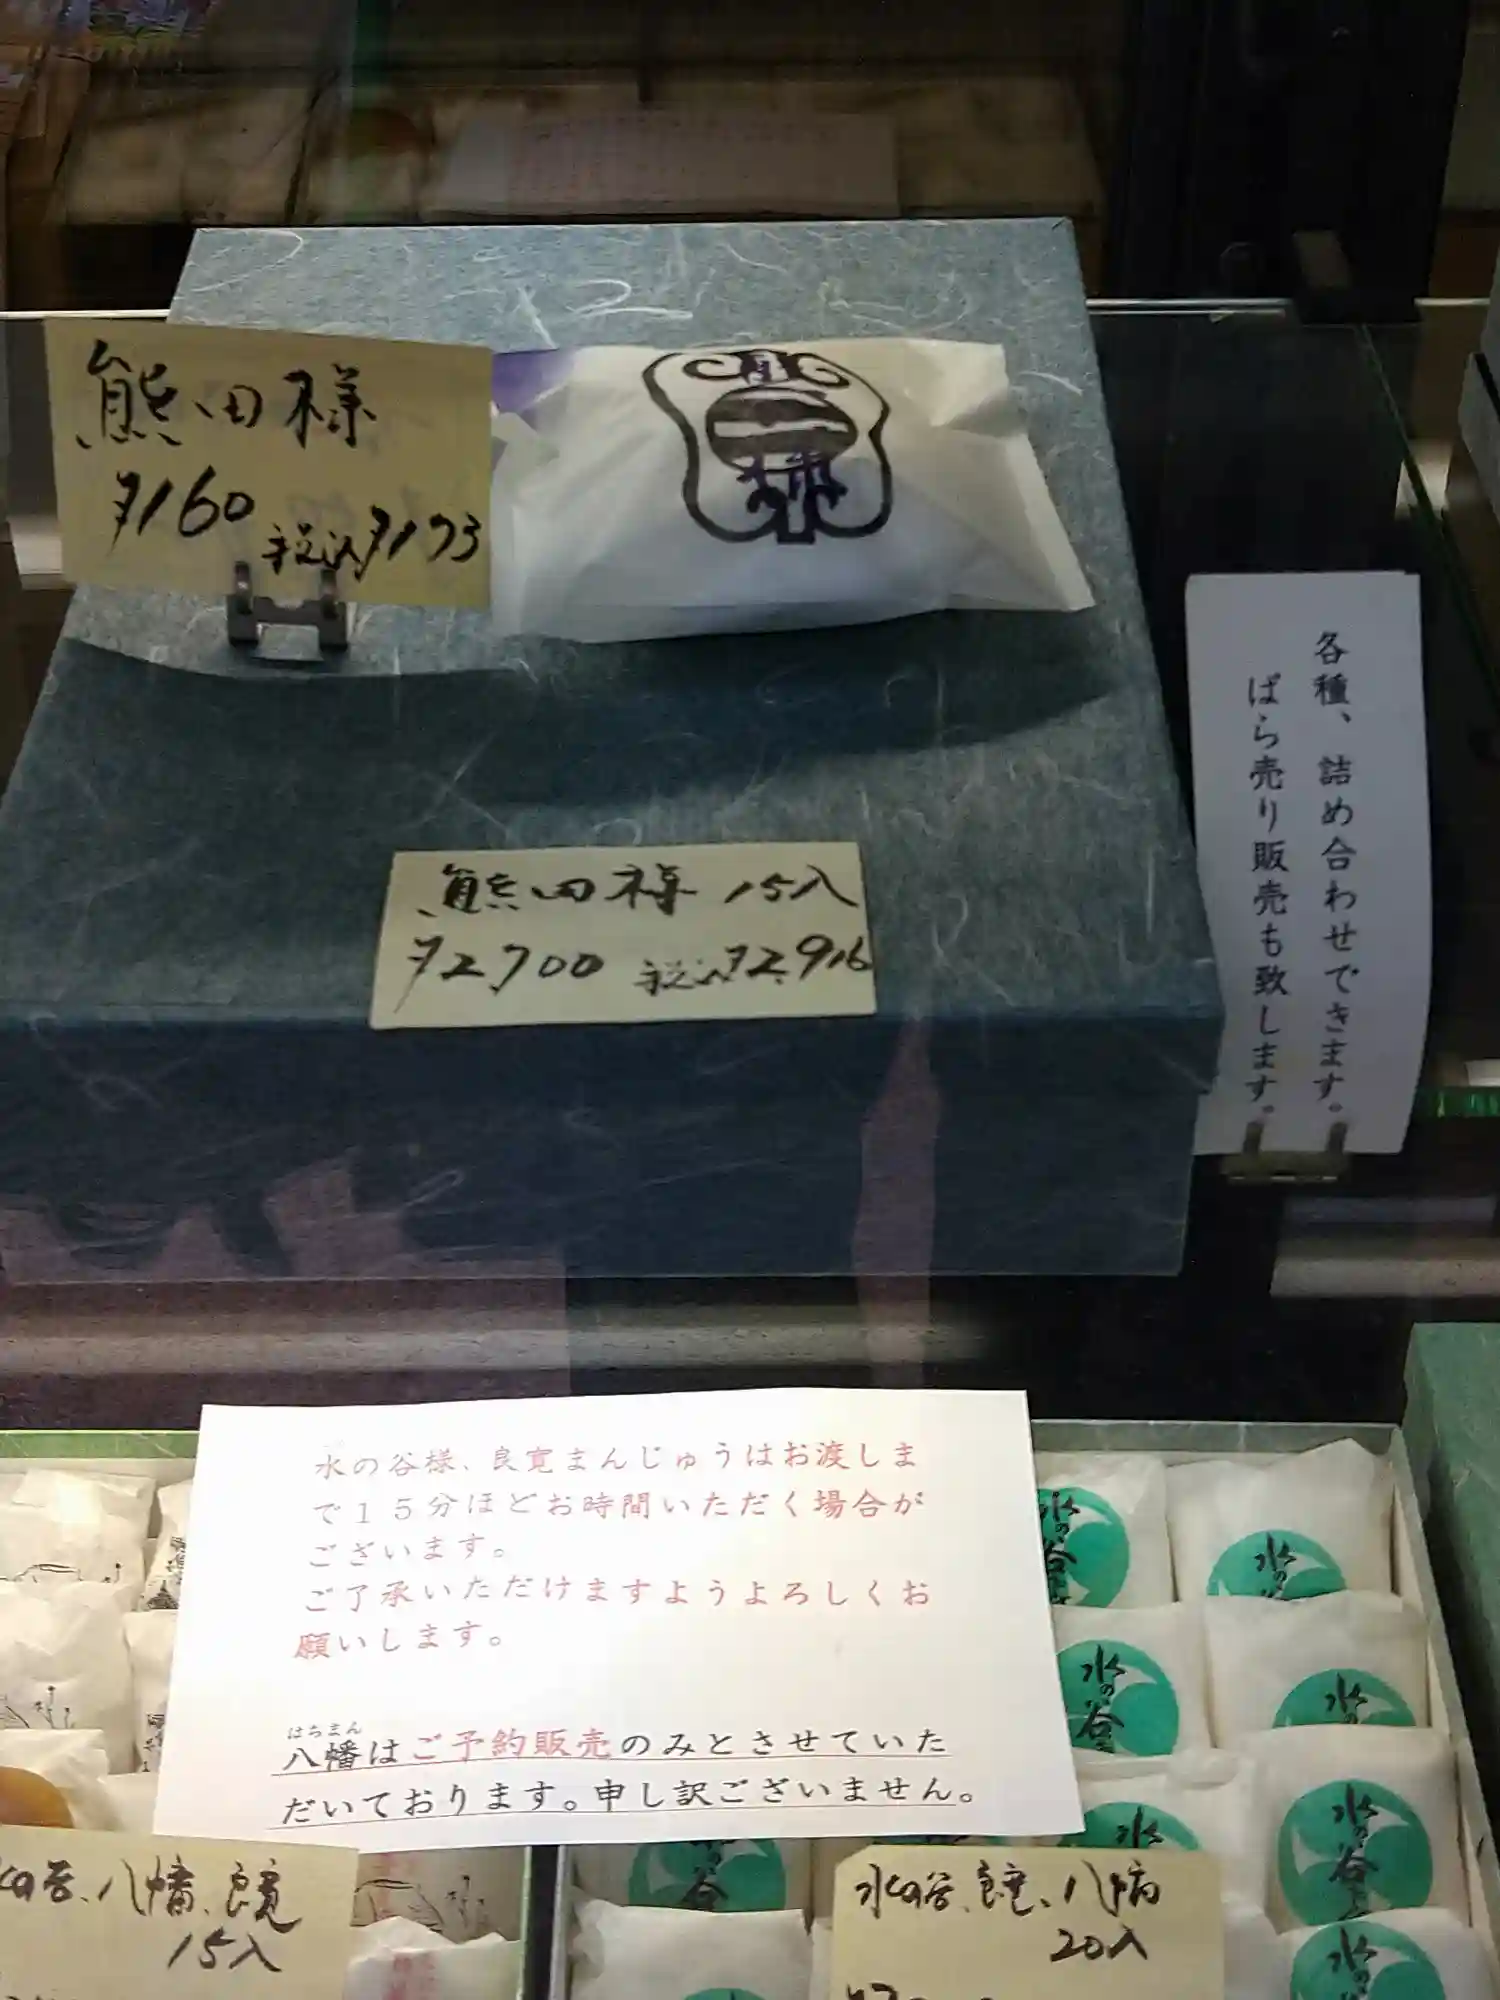 熊田様
¥160 税込¥173
熊田様 15入
¥2,700 税込¥2,916
各種、詰め合わせできます。
ばら売り販売も致します。
水の谷様、良寛まんじゅうはお渡しま
で１５分ほどお時間いただく場合が
ございます。
ご了承いただけますようよろしくお
願いします。
はちまん
八幡はご予約販売のみとさせていた
だいております。申し訳ございません。
水の谷、八幡、良寛
15入
水の谷、良寛、八幡
20入
水の谷
水の谷
水の谷
水の谷
水の谷